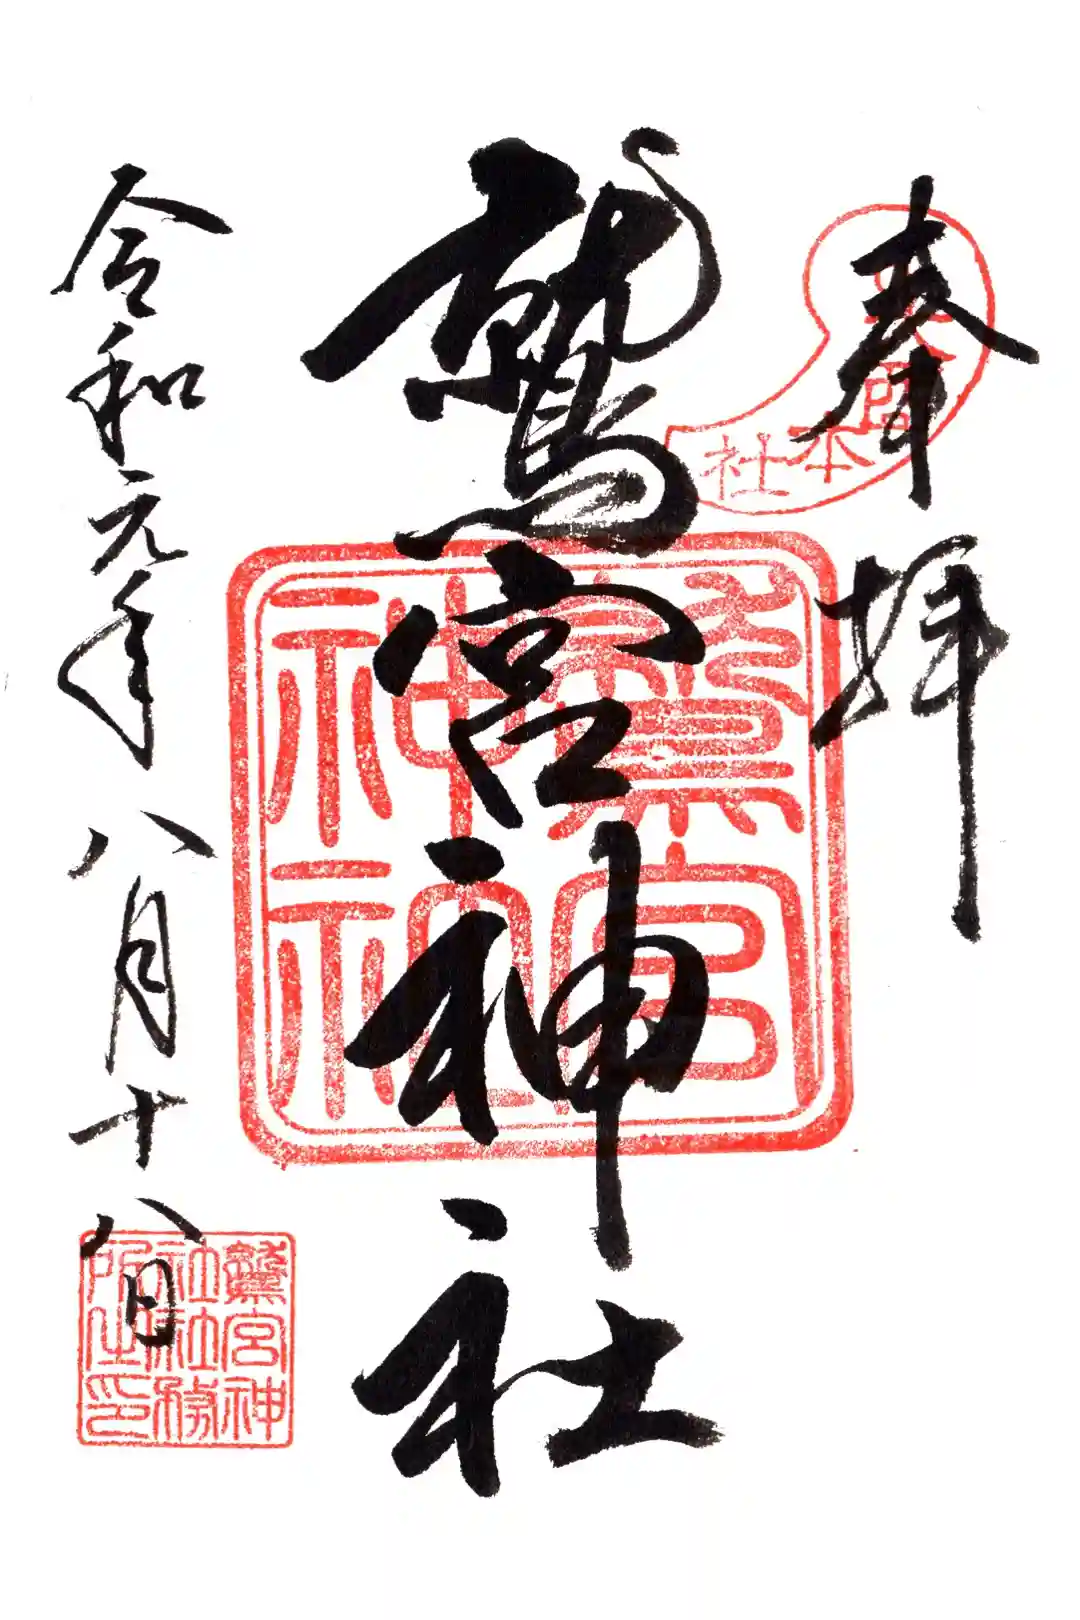 奉拝
本社
鷲宮神社
鷲宮神社
令和元年八月十八日
鷲宮神社社務所之印